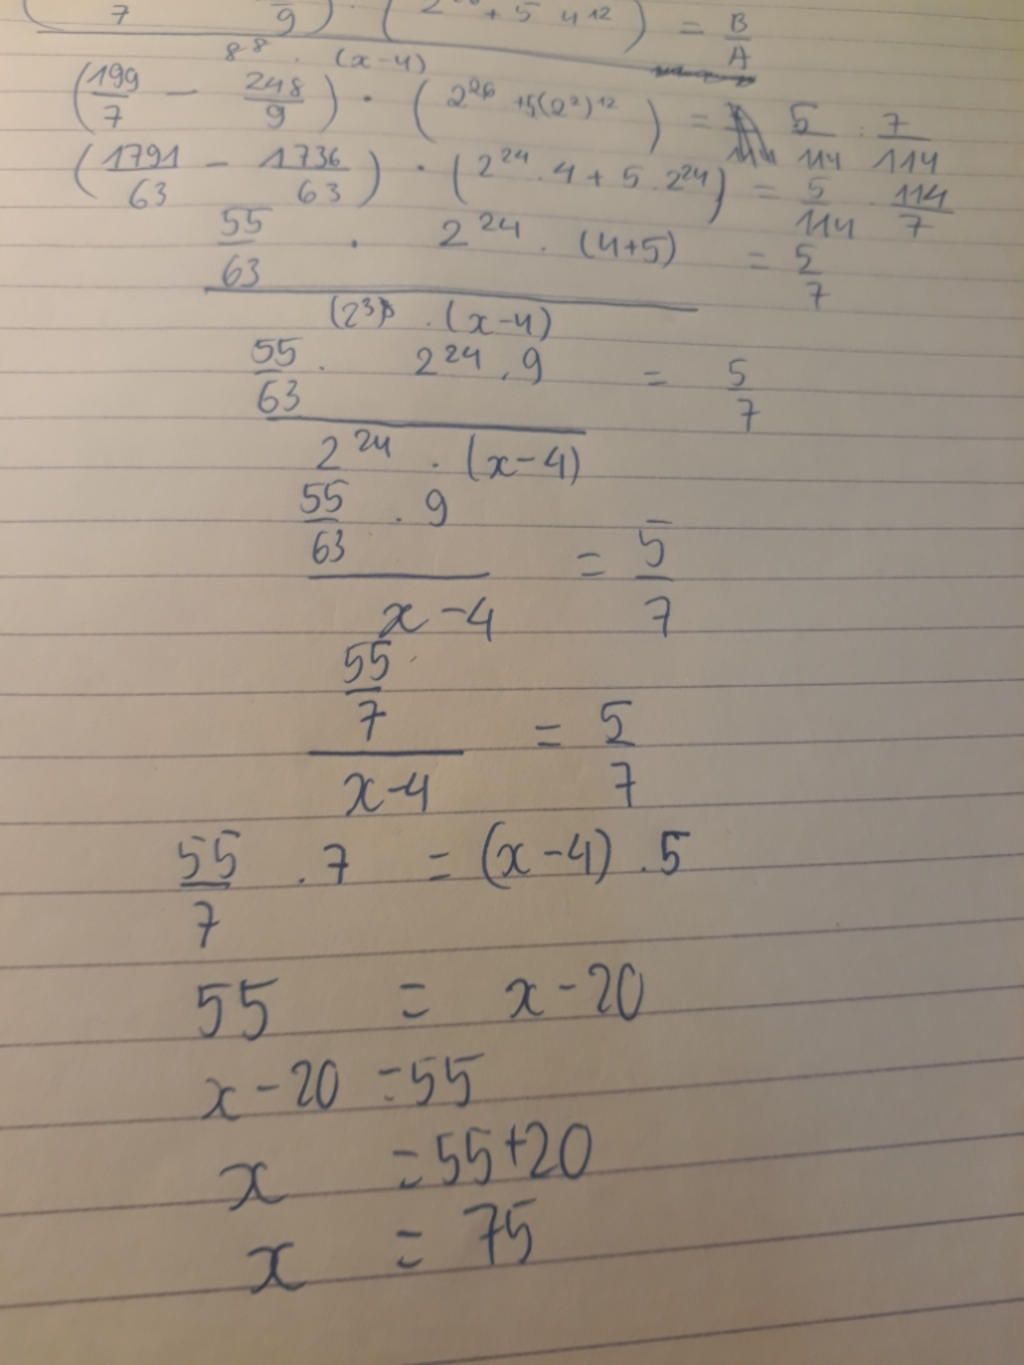 7 9 ) · ( + 5 4¹² ) = B/A
8⁸ · (x-4)
(199/7 - 248/9) · (2²⁶ + 5(2²)¹²) = 5/114 : 7/114
(1791/63 - 1736/63) · (2²⁴ · 4 + 5 · 2²⁴) = 5/114 · 114/7
55/63 · 2²⁴ · (4+5) = 5/7
(2³)⁸ · (x-4)
55/63 · 2²⁴ · 9 = 5/7
2²⁴ · (x-4)
55/63 · 9 = 5/7
x-4
55/7 = 5/7
x-4
55/7 · 7 = (x-4) · 5
55 = x-20
x-20 = 55
x = 55+20
x = 75